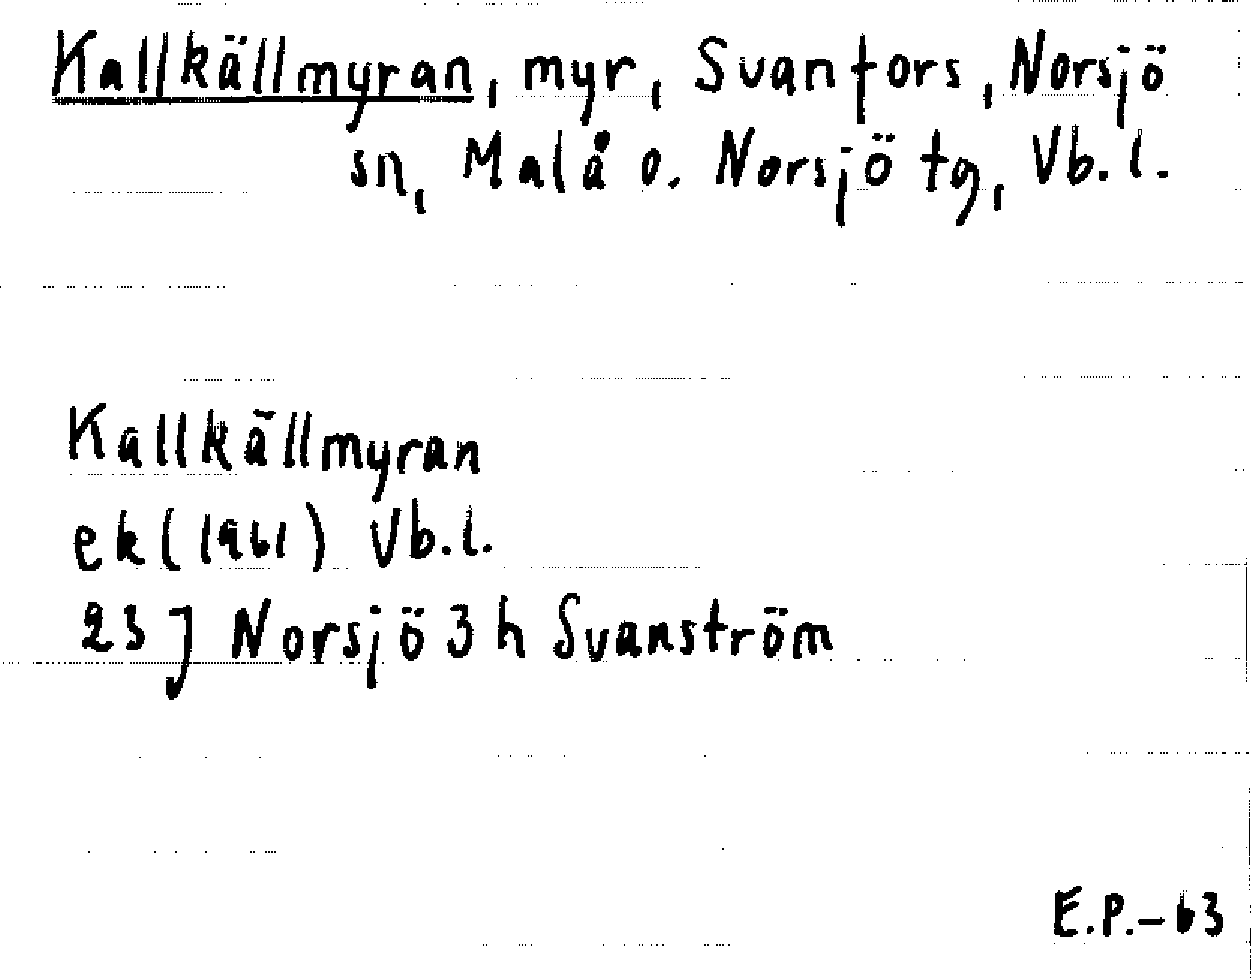 Kallkällmyran, myr, Svanfors, Norsjö
sn, Malå o. Norsjö tg, Vb. l.
Kallkällmyran
ek (1961) Vb.l.
23 J Norsjö 3 h Svanström
E.P.-63